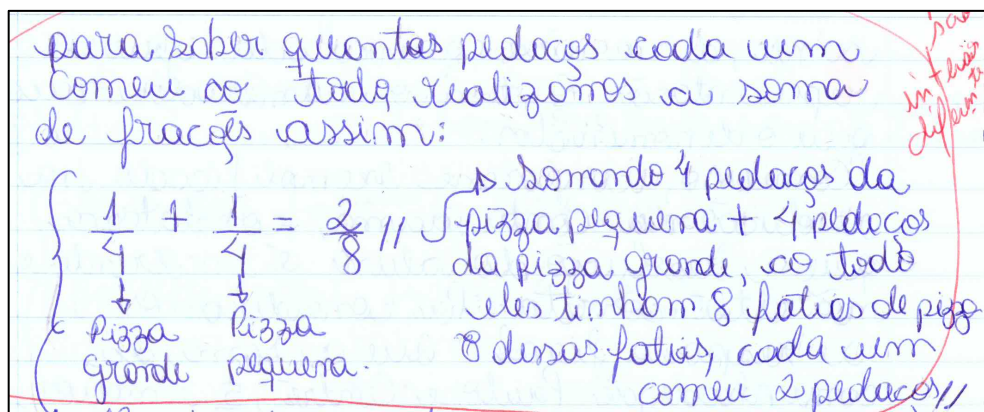 para saber quantos pedaços cada um
comeu ao todo, realizamos a soma
de frações assim:
1/4 + 1/4 = 2/8 //
Pizza grande
Pizza pequena.
Somando 4 pedaços da
pizza pequena + 4 pedaços
da pizza grande, ao todo
eles tinham 8 fatias de pizza
8 dessas fatias, cada um
comeu 2 pedaços//
são
inteiros